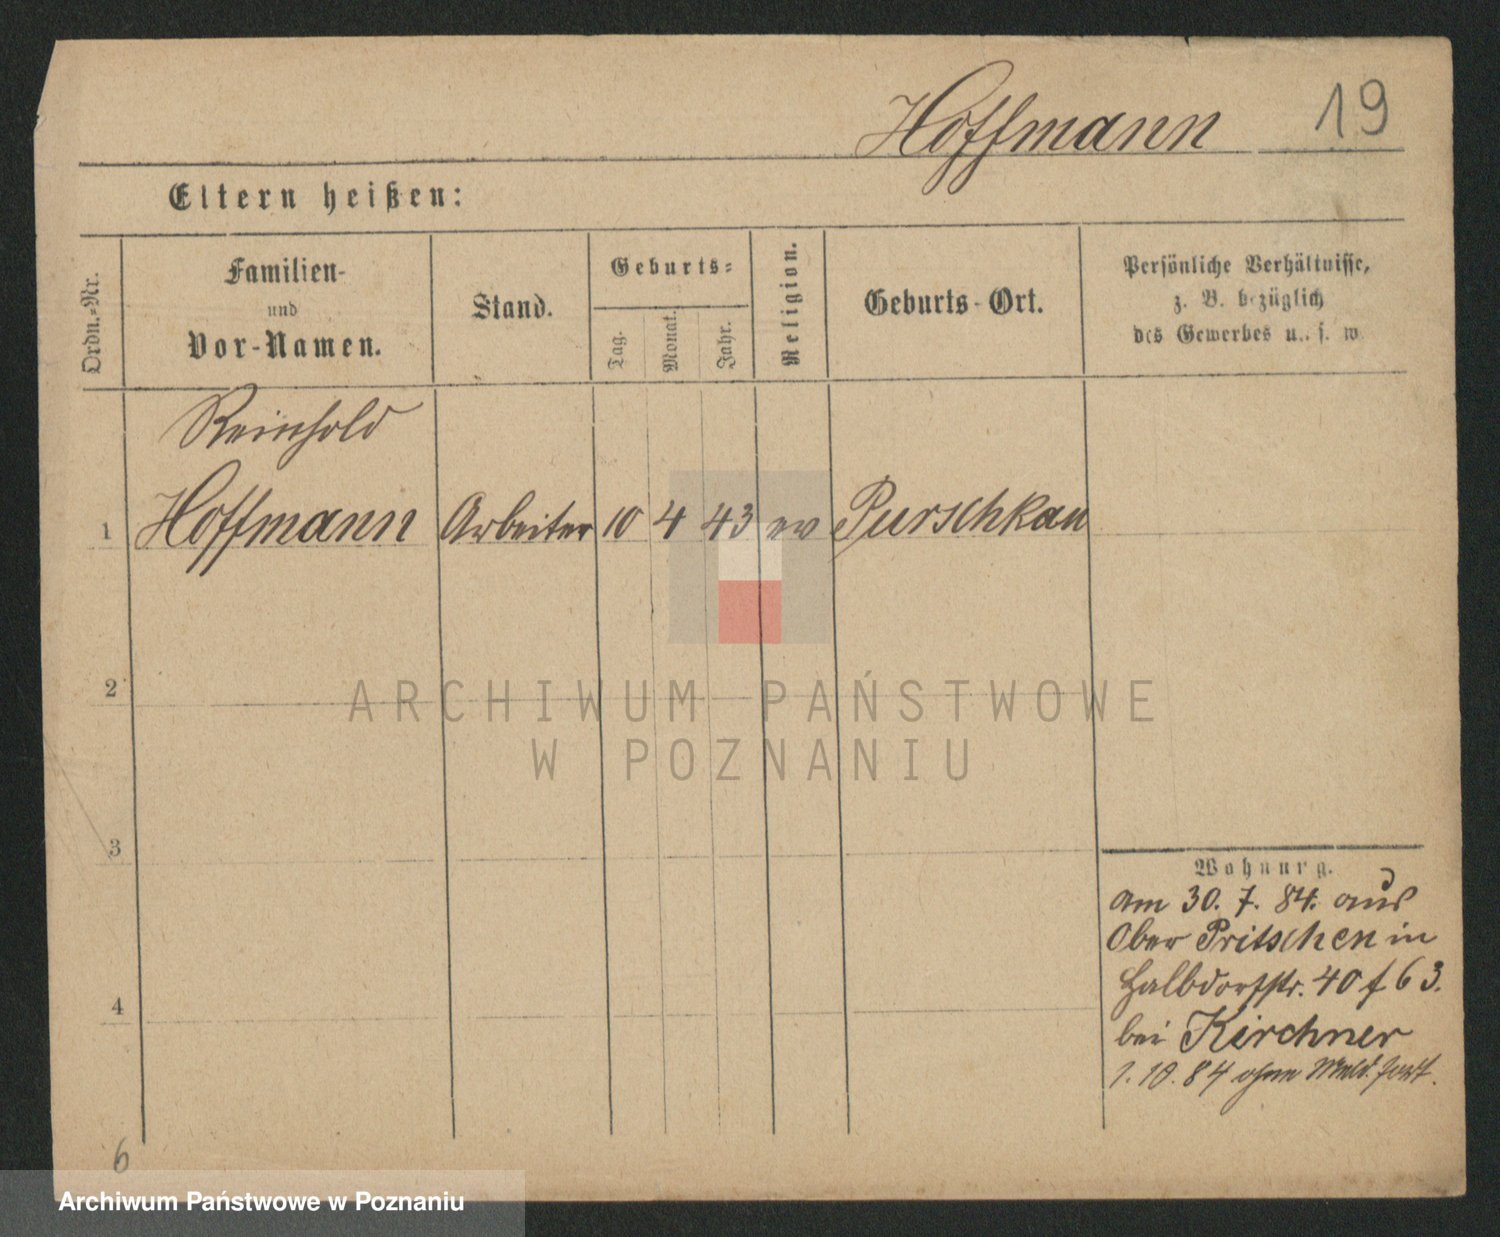 Hoffmann 19
Eltern heißen:
Ordn.=Nr.
Familien-
und
Vor-Namen.
Stand.
Geburts=
Tag.
Monat.
Jahr.
Religion.
Geburts-Ort.
Persönliche Verhältnisse,
z. B. bezüglich
des Gewerbes u. s. w
Reinhold
1 Hoffmann Arbeiter 10 4 43 ev Purschkau
2
ARCHIWUM PAŃSTWOWE
W POZNANIU
3
Wohnung.
am 30. 7. 84. aus
Ober Pritschen in
Halbdorfstr. 40 f 63.
4
bei Kirchner
1. 10. 84 ohne Meld. fort.
6
Archiwum Państwowe w Poznaniu